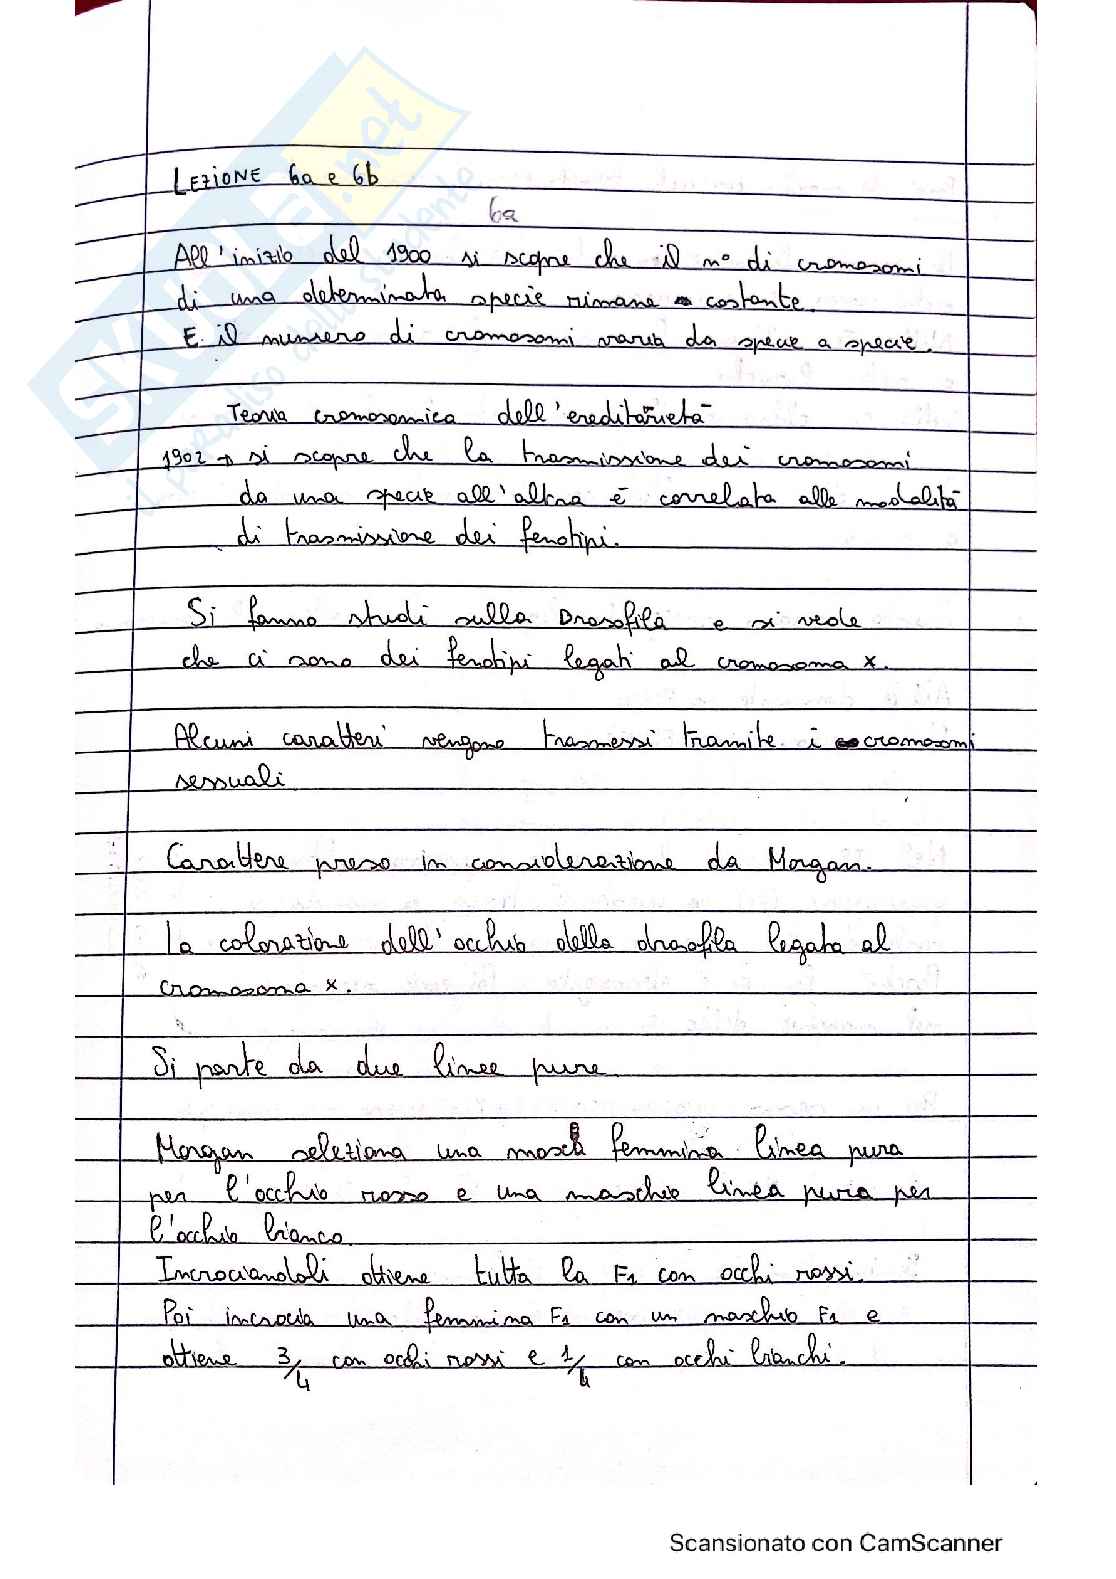 LEZIONE 6a e 6b
6a
All'inizio del 1900 si scopre che il n° di cromosomi
di una determinata specie rimane costante.
E il numero di cromosomi varia da specie a specie.
Teoria cromosomica dell'ereditarietà
1902 → si scopre che la trasmissione dei cromosomi
da una specie all'altra è correlata alle modalità
di trasmissione dei fenotipi.
Si fanno studi sulla Drosofila e si vede
che ci sono dei fenotipi legati al cromosoma x.
Alcuni caratteri vengono trasmessi tramite i cromosomi
sessuali
Carattere preso in considerazione da Morgan.
La colorazione dell'occhio della drosofila legata al
cromosoma x.
Si parte da due linee pure
Morgan seleziona una femmina linea pura
per l'occhio rosso e una maschio linea pura per
l'occhio bianco
Incrociandoli ottiene tutta la F1 con occhi rossi.
Poi incrocia una femmina F1 con un maschio F1 e
ottiene 3/4 con occhi rossi e 1/4 con occhi bianchi.
SKUOLA.net
il paradiso dello studente
Scansionato con CamScanner